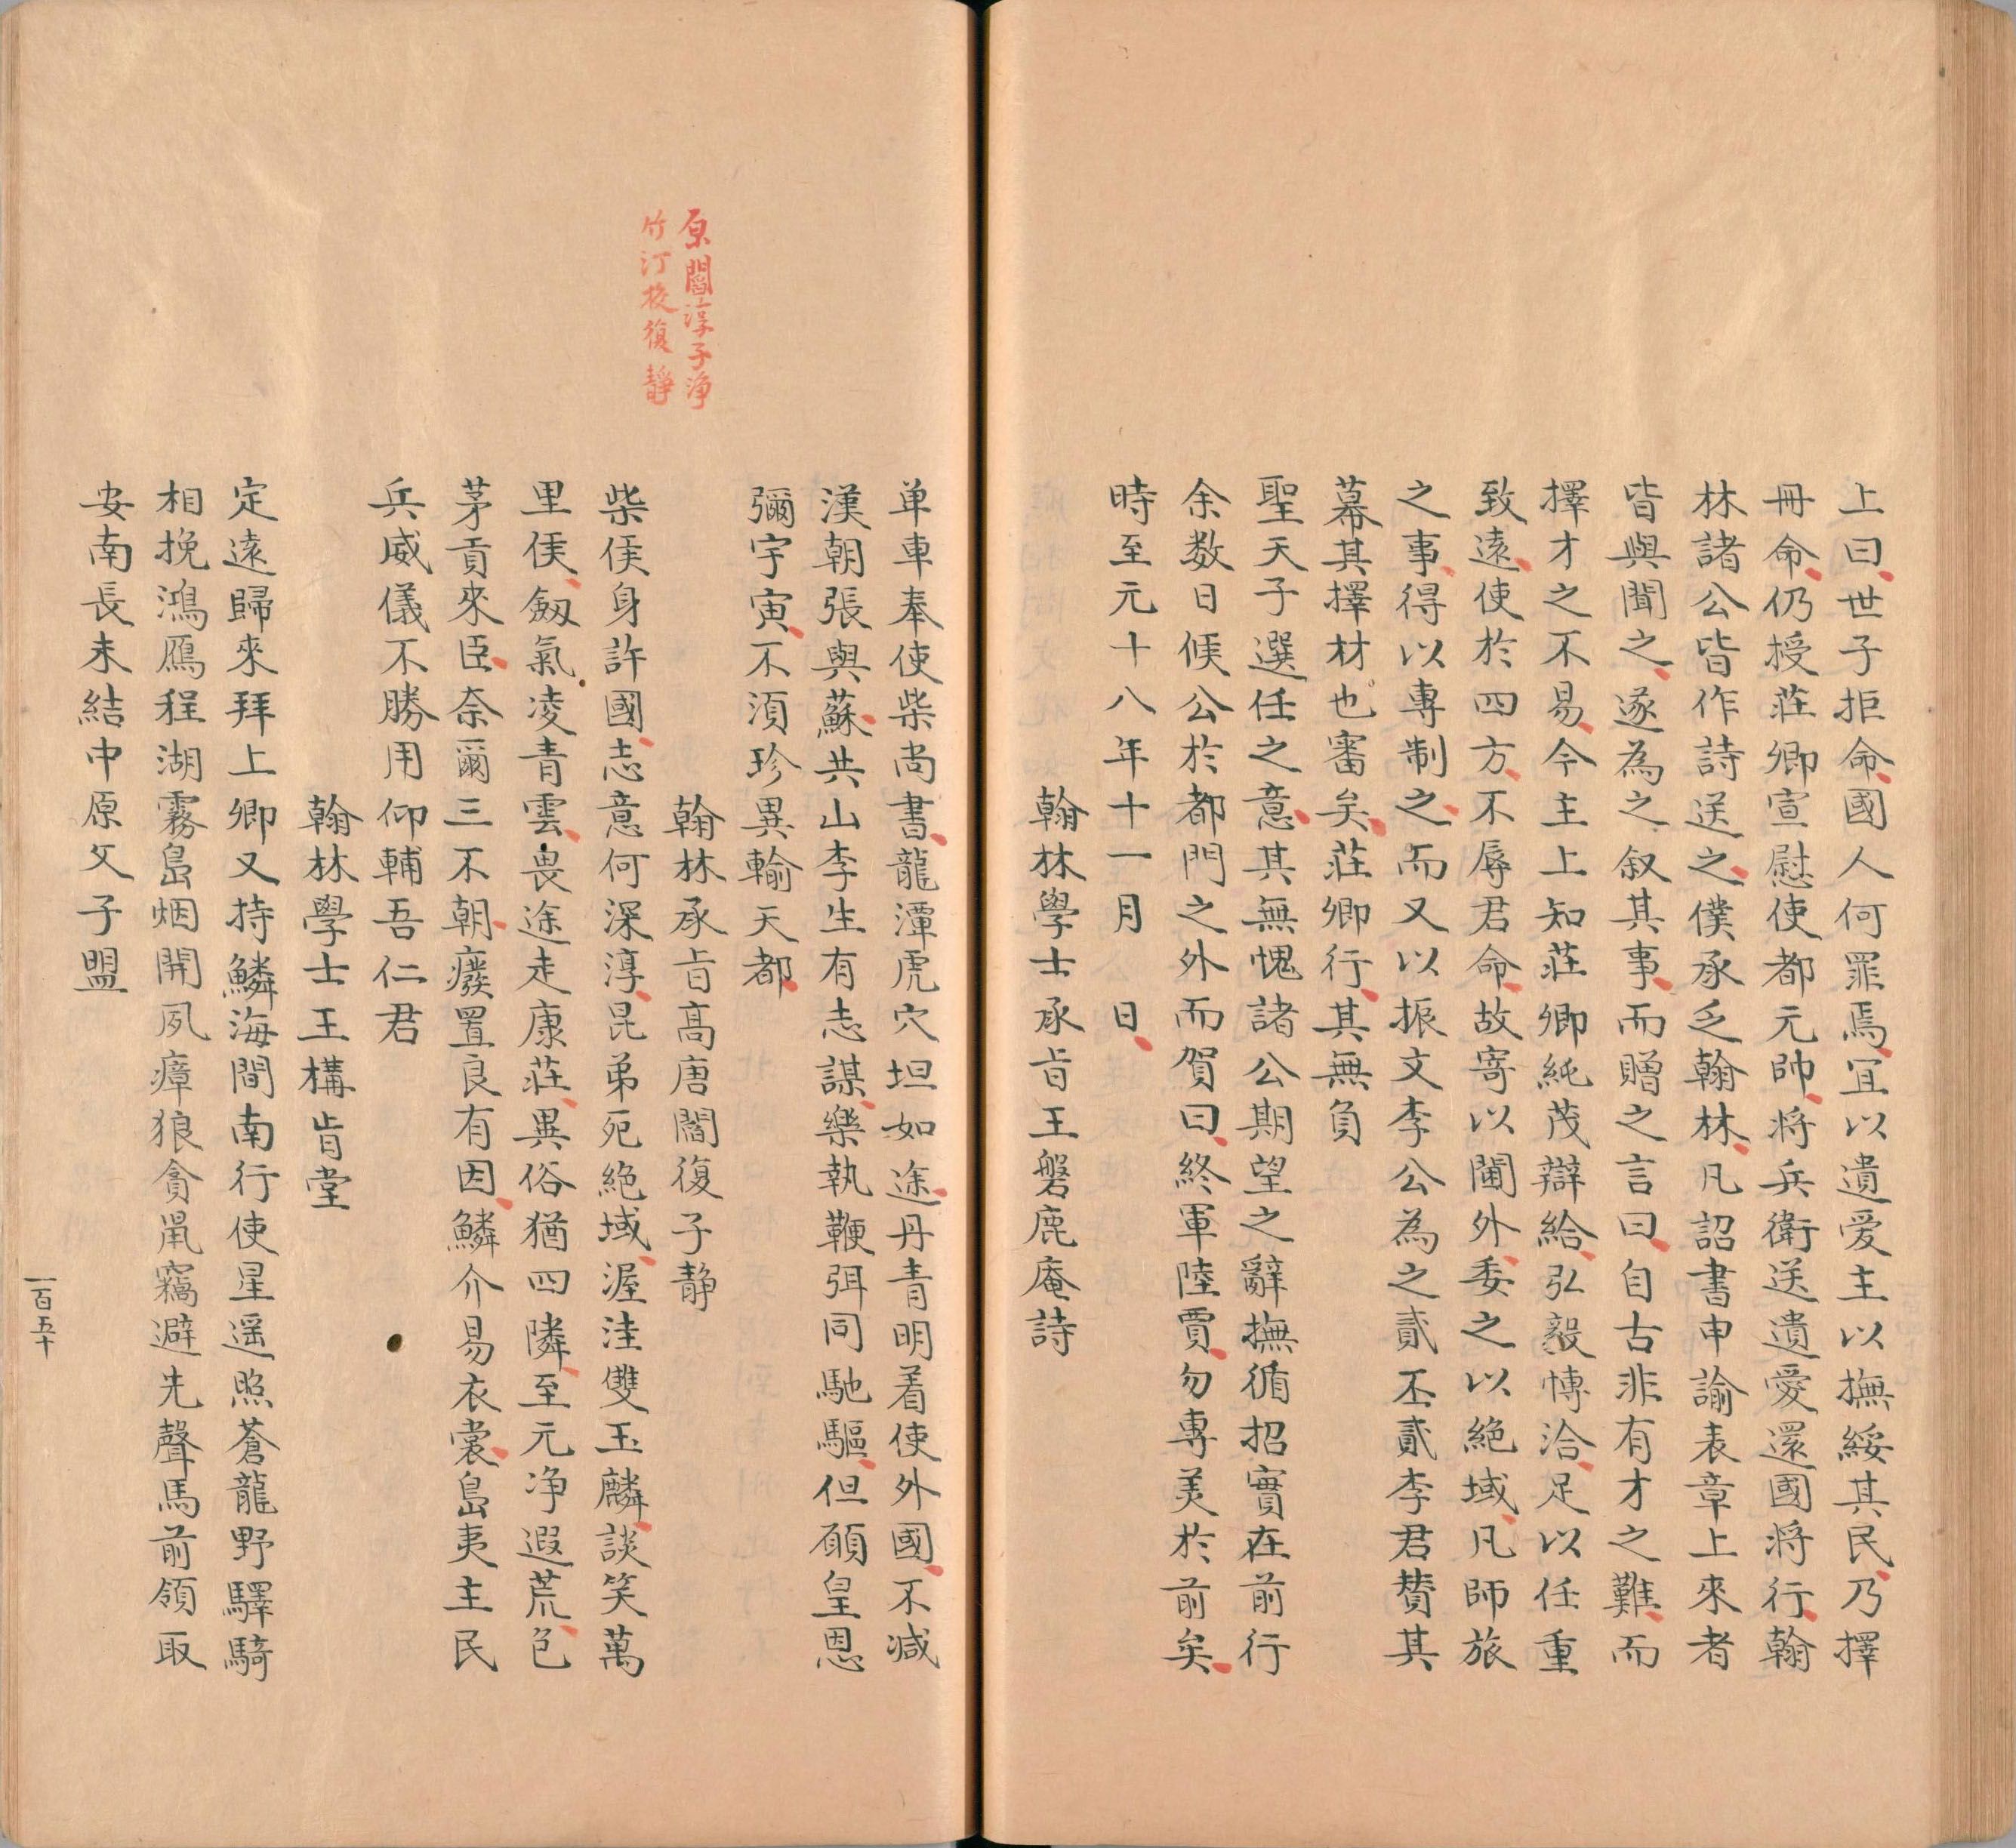 上曰世子拒命國人何罪焉宜以遺爱主以撫綏其民乃擇
冊命仍授莊卿宣慰使都元帥将兵衛送遺愛還國将行翰
林諸公皆作詩送之僕承乏翰林凡詔書申諭表章上來者
皆與聞之遂為之叙其事而贈之言曰自古非有才之難而
擇才之不易今主上知莊卿純茂辯給弘毅博洽足以任重
致遠使於四方不辱君命故寄以閫外委之以絶域凡師旅
之事得以專制之而又以振文李公為之貳丕貳李君贊其
幕其擇材也審矣莊卿行其無負
聖天子選任之意其無愧諸公期望之辭撫循招實在前行
余数日候公於都門之外而賀曰終軍陸賈勿專美於前矣
時至元十八年十一月　日
翰林學士承旨王磐鹿庵詩
单車奉使柴尚書龍潭虎穴坦如途丹青明着使外國不减
漢朝張與蘇共山李生有志謀樂執鞭弭同馳驅但願皇恩
彌宇寅不湏珍異輸天都
翰林承旨髙唐閻復子静
柴侯身許國志意何深淳昆弟死絶域渥洼雙玉麟談笑萬
里侯劔氣凌青雲畏途走康莊異俗猶四隣至元净遐荒包
茅貢來臣奈爾三不朝癈置良有因鱗介易衣裳島夷主民
兵威儀不勝用仰輔吾仁君
翰林學士王構肯堂
定遠歸來拜上卿又持鱗海間南行使星遥照蒼龍野驛騎
相挽鴻鴈程湖霧島烟開夙瘴狼貪鼠竊避先聲馬前領取
安南長未結中原父子盟
原閻淳子净
竹汀校復靜
一百五十